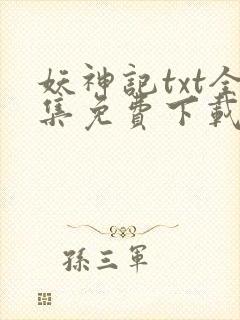 妖神記txt全
集免費下載
孫三軍